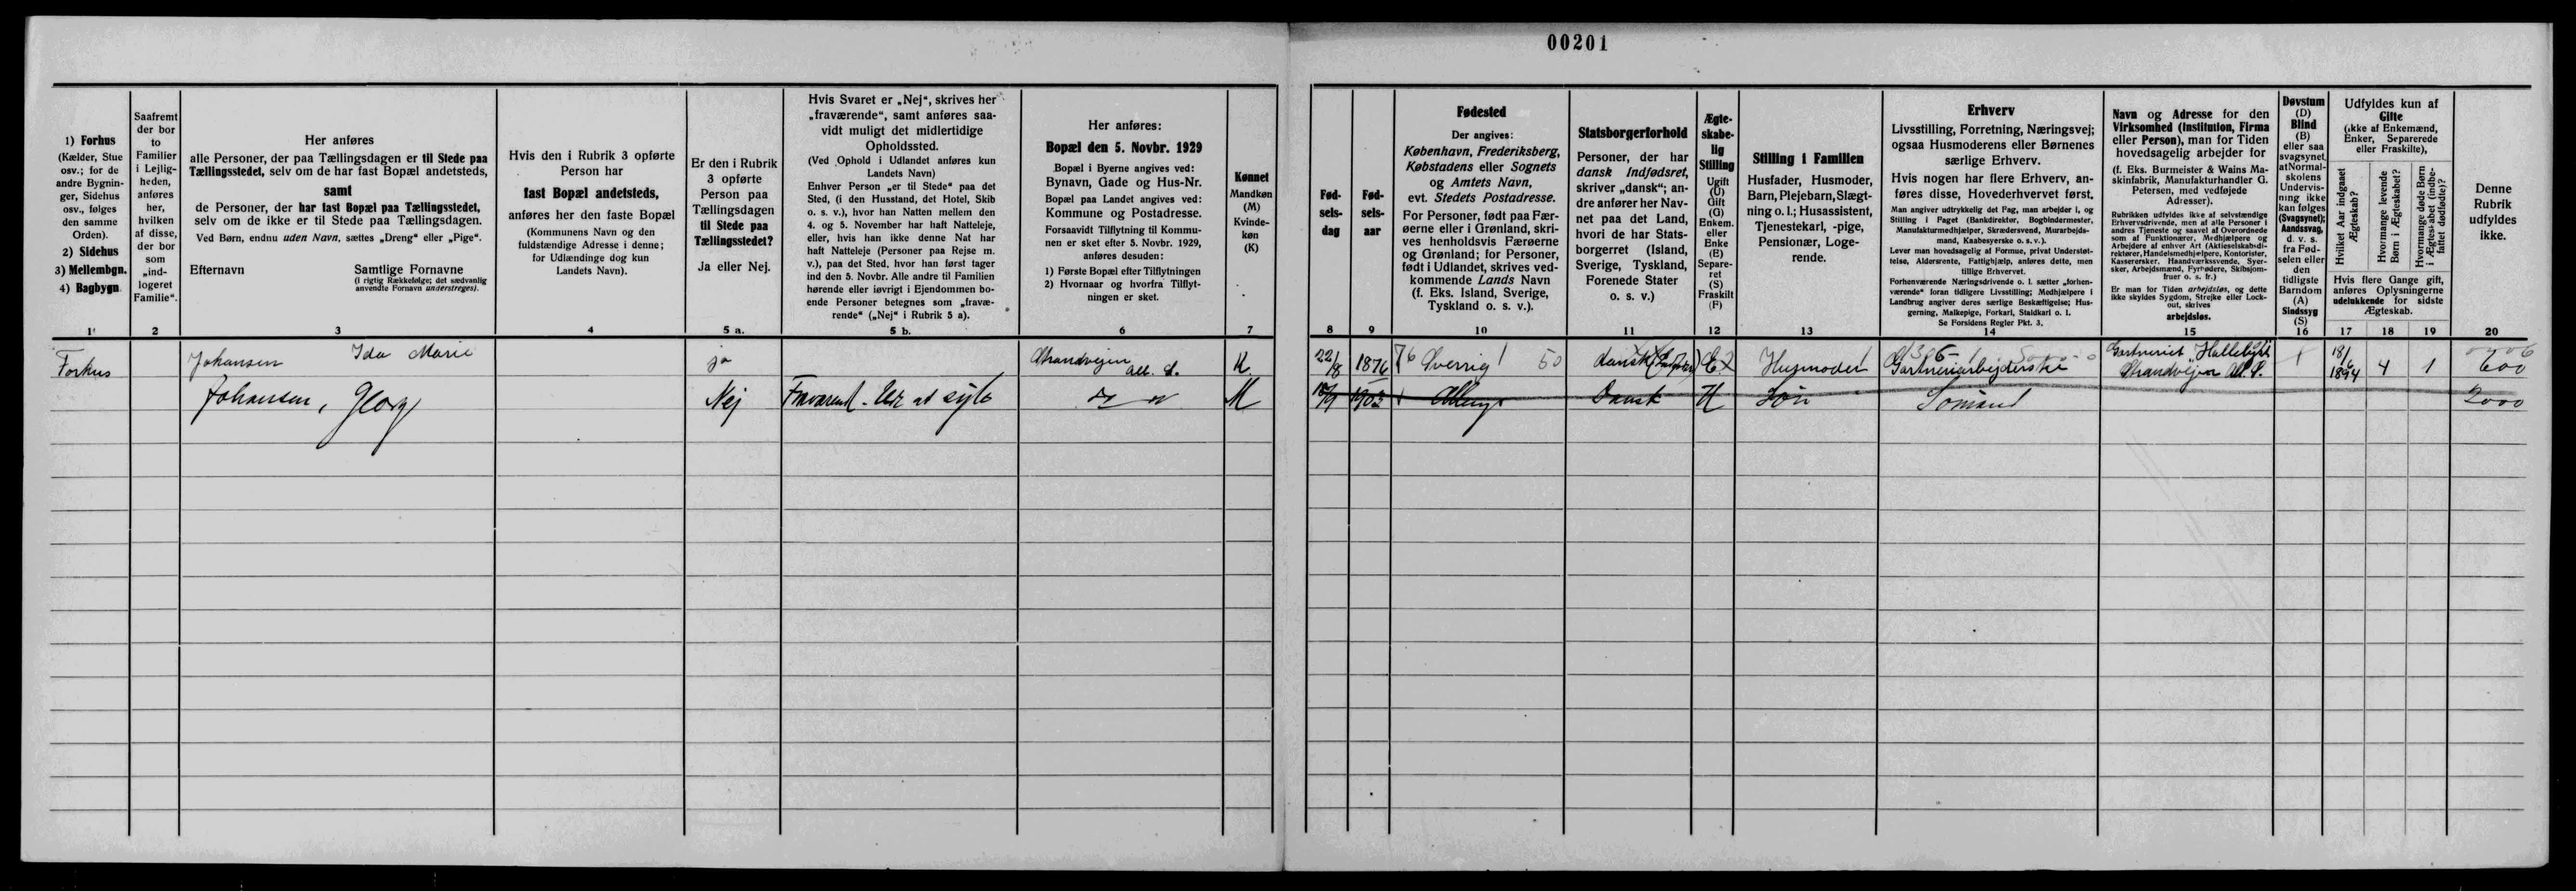 00201
1) Forhus
(Kælder, Stue
osv.; for de
andre Bygnin-
ger, Sidehus
osv., følges
den samme
Orden).
2) Sidehus
3) Mellembgn.
4) Bagbygn.
1
Saafremt
der bor
to
Familier
i Lejlig-
heden,
anføres
her,
hvilken
af disse,
der bor
som
„ind-
logeret
Familie“.
2
Her anføres
alle Personer, der paa Tællingsdagen er til Stede paa
Tællingsstedet, selv om de har fast Bopæl andetsteds,
samt
de Personer, der har fast Bopæl paa Tællingsstedet,
selv om de ikke er til Stede paa Tællingsdagen.
Ved Børn, endnu uden Navn, sættes „Dreng“ eller „Pige“.
Efternavn Samtlige Fornavne
(i rigtig Rækkefølge; det sædvanlig
anvendte Fornavn understreges).
3
Hvis den i Rubrik 3 opførte
Person har
fast Bopæl andetsteds,
anføres her den faste Bopæl
(Kommunens Navn og den
fuldstændige Adresse i denne;
for Udlændinge dog kun
Landets Navn).
4
Er den i Rubrik
3 opførte
Person paa
Tællingsdagen
til Stede paa
Tællingsstedet?
Ja eller Nej.
5 a.
Hvis Svaret er „Nej“, skrives her
„fraværende“, samt anføres saa-
vidt muligt det midlertidige
Opholdssted.
(Ved Ophold i Udlandet anføres kun
Landets Navn)
Enhver Person „er til Stede“ paa det
Sted, (i den Husstand, det Hotel, Skib
o. s. v.), hvor han Natten mellem den
4. og 5. November har haft Natteleje,
eller, hvis han ikke denne Nat har
haft Natteleje (Personer paa Rejse m.
v.), paa det Sted, hvor han først tager
ind den 5. Novbr. Alle andre til Familien
hørende eller iøvrigt i Ejendommen bo-
ende Personer betegnes som „fravæ-
rende“ („Nej“ i Rubrik 5 a).
5 b.
Her anføres:
Bopæl den 5. Novbr. 1929
Bopæl i Byerne angives ved:
Bynavn, Gade og Hus-Nr.
Bopæl paa Landet angives ved:
Kommune og Postadresse.
Forsaavidt Tilflytning til Kommu-
nen er sket efter 5. Novbr. 1929,
anføres desuden:
1) Første Bopæl efter Tilflytningen
2) Hvornaar og hvorfra Tilflyt-
ningen er sket.
6
Kønnet
Mandkøn
(M)
Kvinde-
køn
(K)
7
Fød-
sels-
dag
8
Fød-
sels-
aar
9
Fødested
Der angives:
København, Frederiksberg,
Købstadens eller Sognets
og Amtets Navn,
evt. Stedets Postadresse.
For Personer, født paa Fær-
øerne eller i Grønland, skri-
ves henholdsvis Færøerne
og Grønland; for Personer,
født i Udlandet, skrives ved-
kommende Lands Navn
(f. Eks. Island, Sverige,
Tyskland o. s. v.).
10
Statsborgerforhold
Personer, der har
dansk Indfødsret,
skriver „dansk“; an-
dre anfører her Nav-
net paa det Land,
hvori de har Stats-
borgerret (Island,
Sverige, Tyskland,
Forenede Stater
o. s. v.)
11
Ægte-
skabe-
lig
Stilling
Ugift
(U)
Gift
(G)
Enkem.
eller
Enke
(E)
Separe-
ret
(S)
Fraskilt
(F)
12
Stilling i Familien
Husfader, Husmoder,
Barn, Plejebarn, Slægt-
ning o. l.; Husassistent,
Tjenestekarl, -pige,
Pensionær, Loge-
rende.
13
Erhverv
Livsstilling, Forretning, Næringsvej;
ogsaa Husmoderens eller Børnenes
særlige Erhverv.
Hvis nogen har flere Erhverv, an-
føres disse, Hovederhvervet først.
Man angiver udtrykkelig det Fag, man arbejder i, og
Stilling i Faget (Bankdirektør, Bogbindermester,
Manufakturmedhjælper, Skrædersvend, Murarbejds-
mand, Kaabesyerske o. s. v.).
Lever man hovedsagelig af Formue, privat Understøt-
telse, Aldersrente, Fattighjælp, anføres dette, men
tillige Erhvervet.
Forhenværende Næringsdrivende o. l. sætter „forhen-
værende“ foran tidligere Livsstilling; Medhjælpere i
Landbrug angiver deres særlige Beskæftigelse; Hus-
gerning, Malkepige, Forkarl, Staldkarl o. l.
Se Forsidens Regler Pkt. 3.
14
Navn og Adresse for den
Virksomhed (Institution, Firma
eller Person), man for Tiden
hovedsagelig arbejder for
(f. Eks. Burmeister & Wains Ma-
skinfabrik, Manufakturhandler G.
Petersen, med vedføjede
Adresser).
Rubrikken udfyldes ikke af selvstændige
Erhvervsdrivende, men af alle Personer i
andres Tjeneste og saavel af Overordnede
som af Funktionærer, Medhjælpere og
Arbejdere af enhver Art (Aktieselskabsdi-
rektører, Handelsmedhjælpere, Kontorister,
Kassererсker, Haandværkssvende, Syer-
sker, Arbejdsmænd, Fyrbødere, Skibsjom-
fruer o. s. fr.)
Er man for Tiden arbejdsløs, og dette
ikke skyldes Sygdom, Strejke eller Lock-
out, skrives
arbejdsløs.
15
Døvstum
(D)
Blind
(B)
eller saa
svagsynet,
at Normal-
skolens
Undervis-
ning ikke
kan følges
(Svagsynet);
Aandssvag,
d. v. s.
fra Fød-
selen eller
den
tidligste
Barndom
(A)
Sindssyg
(S)
16
Udfyldes kun af
Gifte
(ikke af Enkemænd,
Enker, Separerede
eller Fraskilte),
Hvilket Aar indgaaet
Ægteskab?
Hvormange levende
Børn i Ægteskabet?
Hvormange døde Børn
i Ægteskabet (indbe-
fattet dødfødte)?
Hvis flere Gange gift,
anføres Oplysningerne
udelukkende for sidste
Ægteskab.
17 18 19
Denne
Rubrik
udfyldes
ikke.
20
Forhus Johansen Ida Marie ja Strandvejen All. S. K. 22/8 1876 76 Sverrig 50 dansk E. Husmoder Gartneriarbejderske Gartneriet Strandvejen All. S. 18/6 1894 4 1 600
Johansen, Georg Nej Fraværend M 1903 Allinge Dansk Søn Sømand 2000